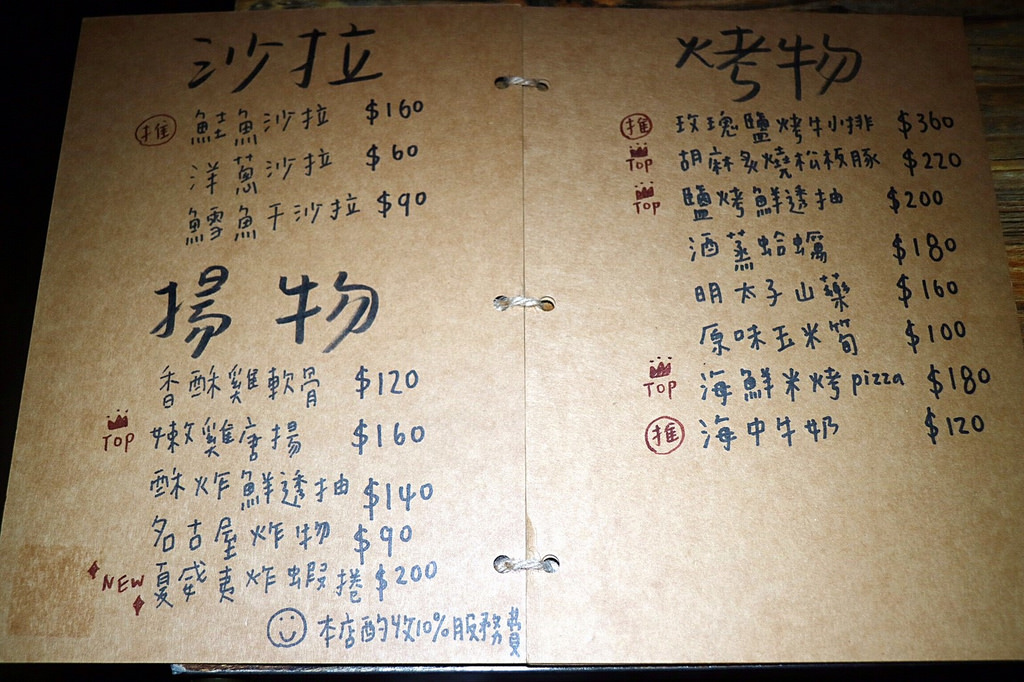 沙拉
推 鮭魚沙拉 $160
洋蔥沙拉 $60
鱈魚干沙拉 $90
揚物
香酥雞軟骨 $120
TOP 嫩雞唐揚 $160
酥炸鮮透抽 $140
名古屋炸物 $90
NEW 夏威夷炸蝦捲 $200
本店酌收10%服務費
烤物
推 玫瑰鹽烤牛小排 $360
TOP 胡麻炙燒松板豚 $220
TOP 鹽烤鮮透抽 $200
酒蒸蛤蠣 $180
明太子山藥 $160
原味玉米筍 $100
TOP 海鮮米烤pizza $180
推 海中牛奶 $120